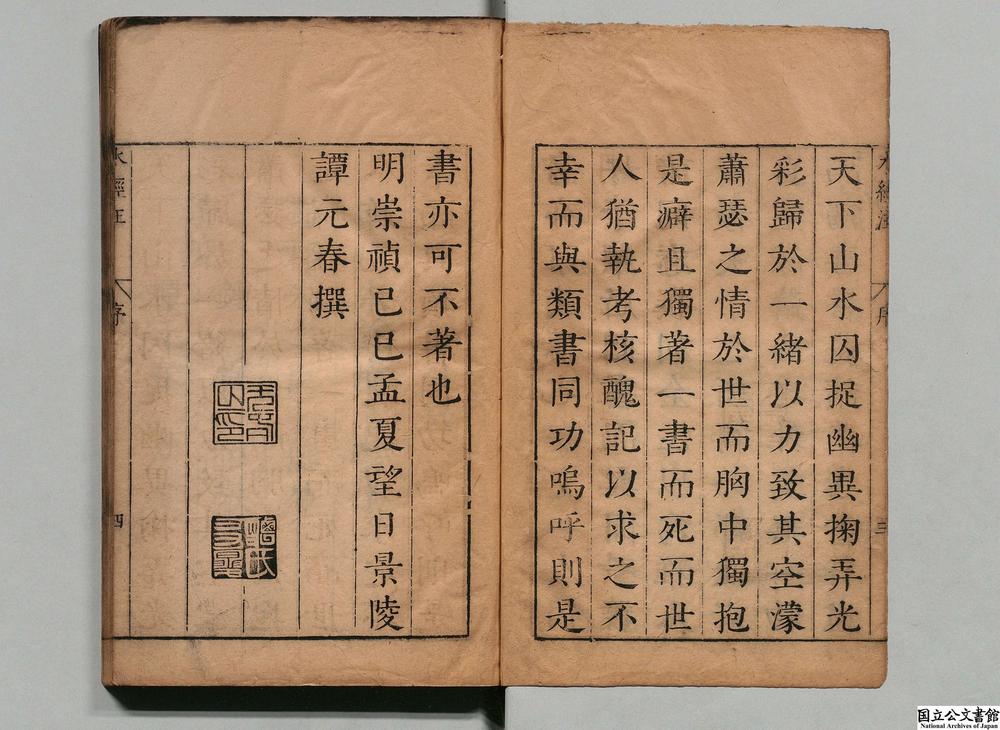 天下山水囚捉幽異掬弄光
彩歸於一緒以力致其空濛
蕭瑟之情於世而胸中獨抱
是癖且獨著一書而死而世
人猶執考核醜記以求之不
幸而與類書同功嗚呼則是
書亦可不著也
明崇禎己巳孟夏望日景陵
譚元春撰
水經注
序
四
国立公文書館
National Archives of Japan